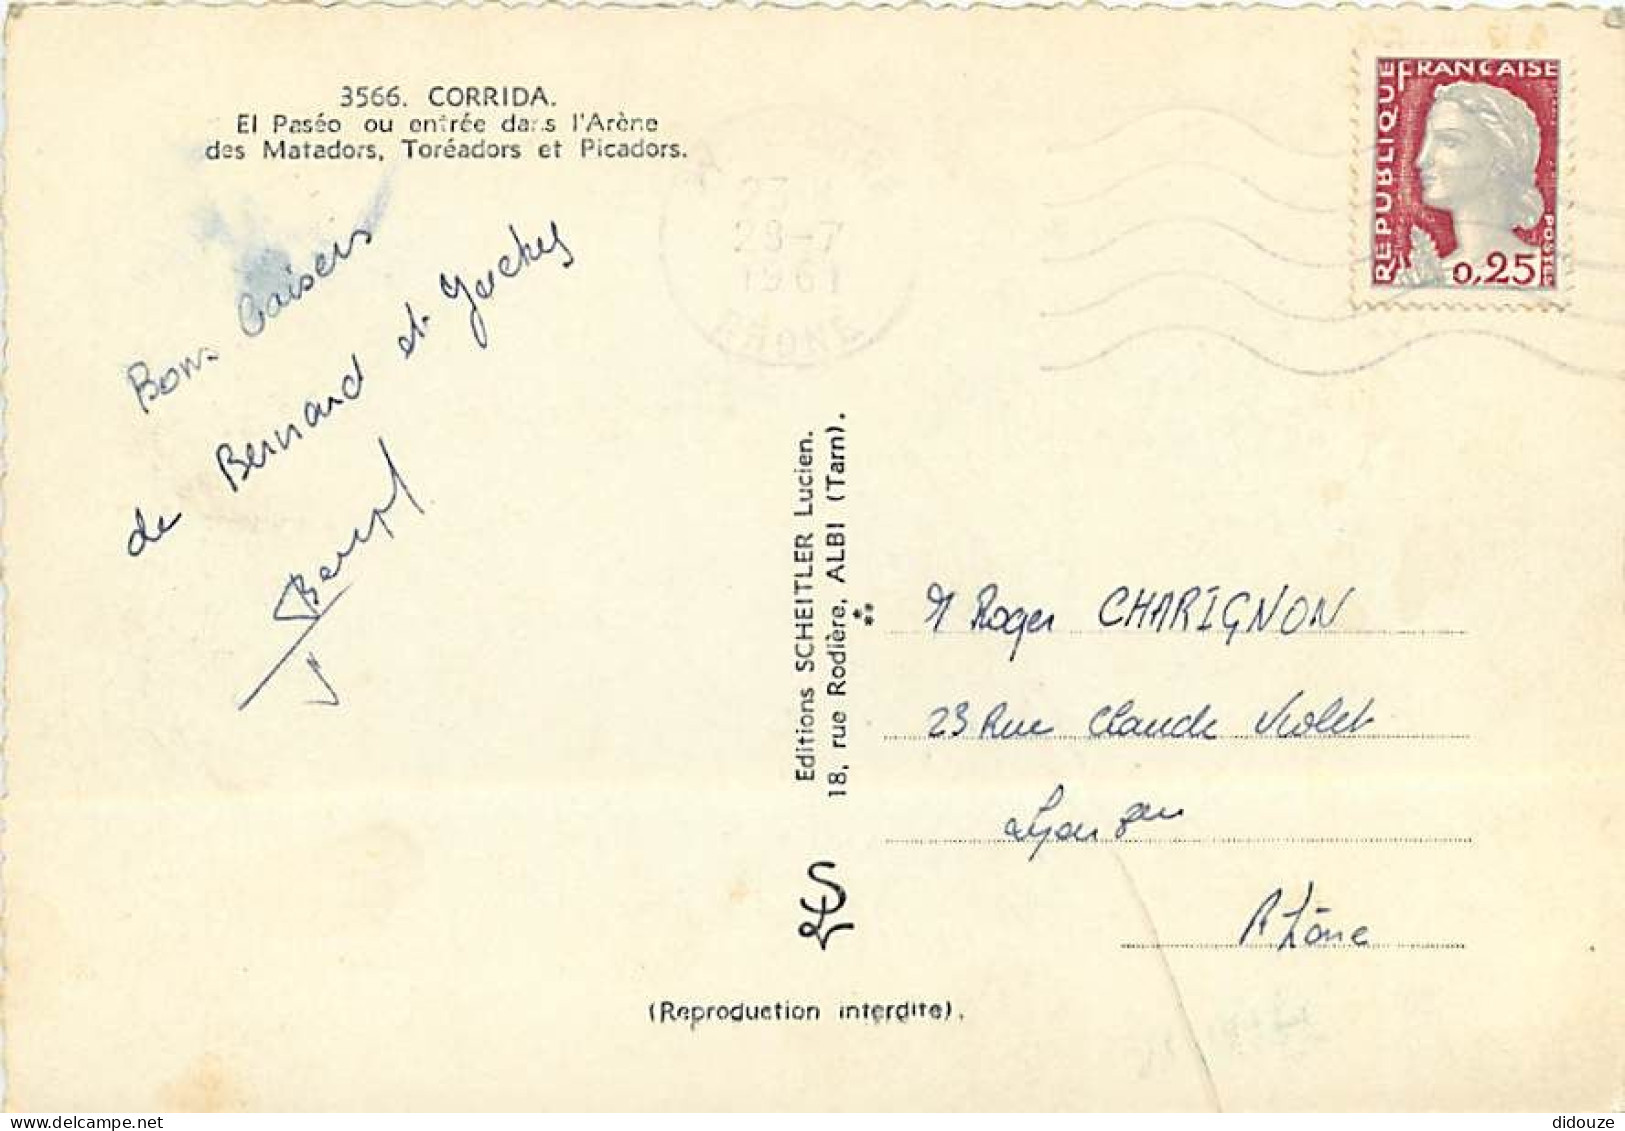 3566. CORRIDA.
El Paséo ou entrée dans l'Arène
des Matadors, Toréadors et Picadors.
Bons baisers
de Bernard et
RÉPUBLIQUE FRANÇAISE
POSTES
0,25
1961
RHONE
Editions SCHEITLER Lucien.
18, rue Rodière, ALBI (Tarn).
M Roger CHARIGNON
23 Rue Claude Violet
Lyon
Rhône
(Reproduction interdite).
didouze